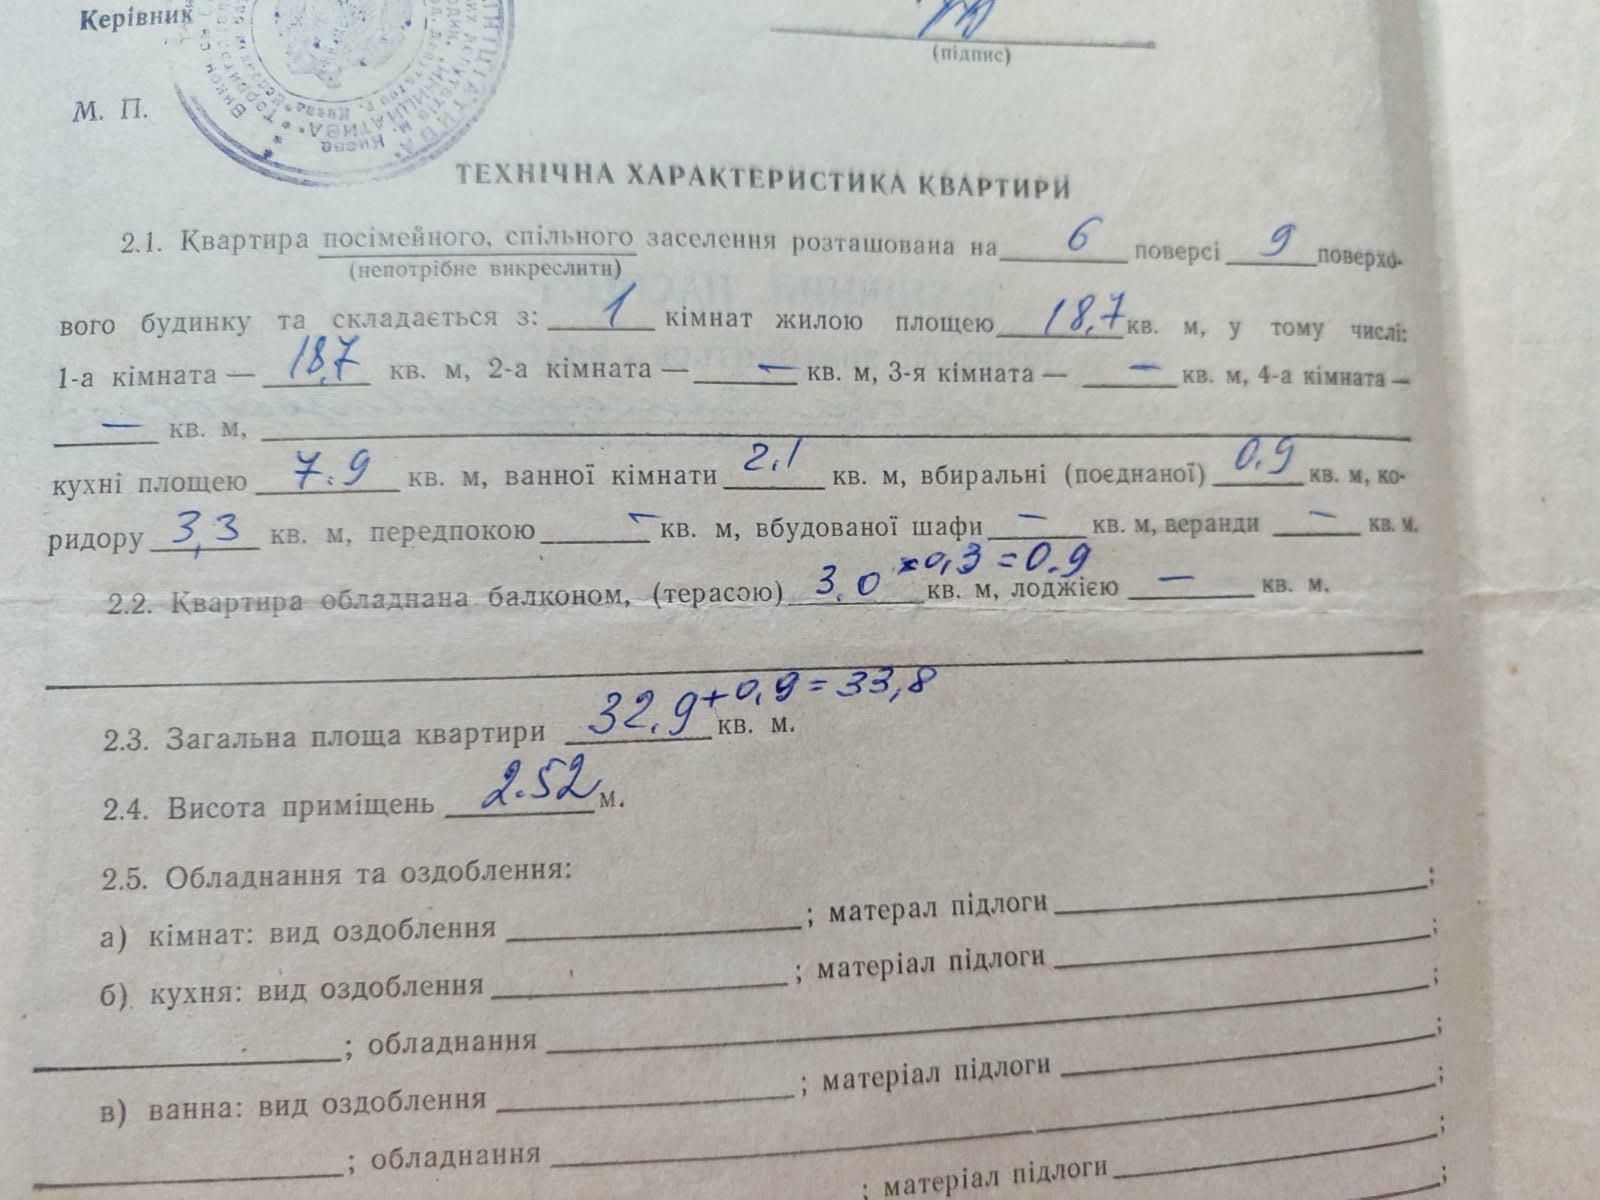 Керівник
(підпис)
М. П.
ТЕХНІЧНА ХАРАКТЕРИСТИКА КВАРТИРИ
2.1. Квартира посімейного, спільного заселення розташована на 6 поверсі 9 поверхо-
(непотрібне викреслити)
вого будинку та складається з: 1 кімнат жилою площею 18,7 кв. м, у тому числі:
1-а кімната — 18,7 кв. м, 2-а кімната — — кв. м, 3-я кімната — — кв. м, 4-а кімната —
— кв. м,
кухні площею 7.9 кв. м, ванної кімнати 2.1 кв. м, вбиральні (поєднаної) 0.9 кв. м, ко-
ридору 3,3 кв. м, передпокою — кв. м, вбудованої шафи — кв. м, веранди — кв. м.
2.2. Квартира обладнана балконом, (терасою) 3,0 ×0,3 = 0.9 кв. м, лоджією — кв. м.
2.3. Загальна площа квартири 32.9 + 0,9 = 33,8 кв. м.
2.4. Висота приміщень 2.52 м.
2.5. Обладнання та оздоблення:
а) кімнат: вид оздоблення ; матерал підлоги ;
б) кухня: вид оздоблення ; матеріал підлоги ;
; обладнання ;
в) ванна: вид оздоблення ; матеріал підлоги ;
; обладнання ;
; матеріал підлоги ;